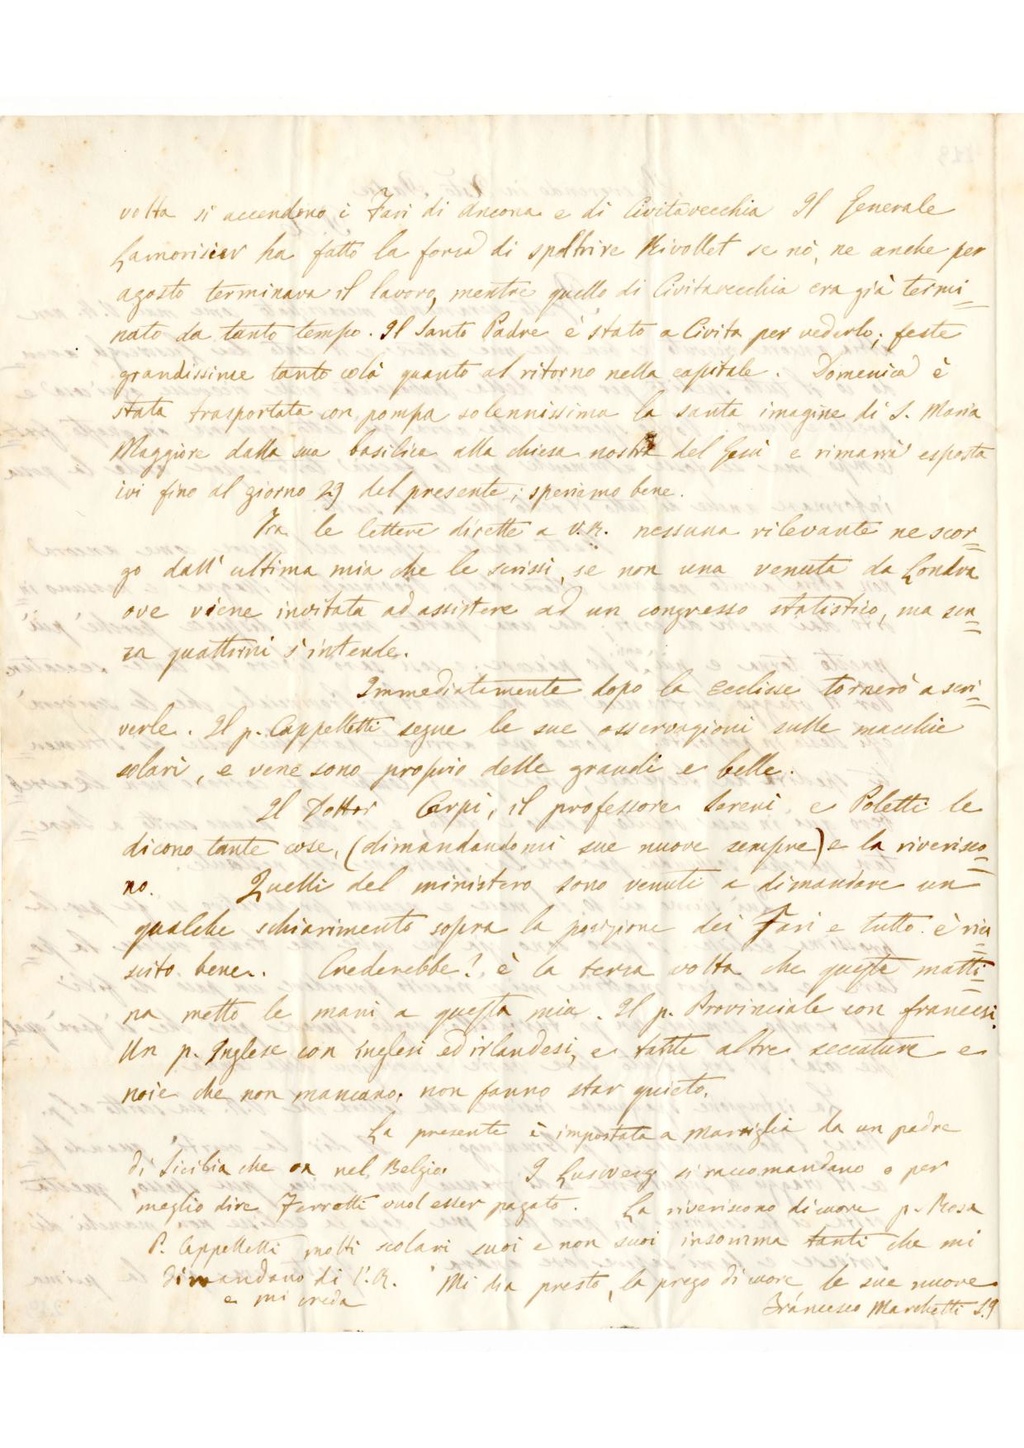 volta si accendono i Fari di Ancona e di Civitavecchia Il Generale
Lamorisier ha fatto la forza di spoltrire Rivollet se nò, ne anche per
agosto terminava il lavoro, mentre quello di Civitavecchia era già termi=
nato da tanto tempo. Il Santo Padre è stato a Civita per vederlo; feste
grandissime tanto colà quanto al ritorno nella capitale. Domenica è
stata trasportata con pompa solennissima la santa imagine di S. Maria
Maggiore dalla sua basilica alla chiesa nostra del Gesù e rimarrà esposta
ivi fino al giorno 29 del presente; speriamo bene.
Fra le lettere dirette a V.R. nessuna rilevante ne scor=
go dall' ultima mia che le scrissi, se non una venuta da Londra
ove viene invitata ad assistere ad un congresso statistico, ma sen=
za quattrini s'intende.
Immediatamente dopo la Ecclisse tornerò a scri=
verle. Il p. Cappelletti segue le sue osservazioni sulle macchie
solari, e vene sono proprio delle grandi e belle.
Il Dottor Carpi, il professore Sereni, e Poletti le
dicono tante cose, (dimandandomi sue nuove sempre) e la riverisco=
no. Quelli del ministero sono venuti a dimandare un
qualche schiarimento sopra la posizione dei Fari e tutto è riu=
scito bene. Crederebbe? è la terza volta che questa matti=
na metto le mani a questa mia. Il p. Provinciale con francesi.
Un p. Inglese con inglesi ed irlandesi, e tante altre seccature e
noie che non mancano, non fanno star quieto.
La presente è impostata a Marsiglia da un padre
di Sicilia che va nel Belgio. I Lusverg si raccomandano o per
meglio dire Ferrotti vuol esser pagato. La riveriscono di cuore p. Rosa
P. Cappelletti molti scolari suoi e non suoi insomma tanti che mi
dimandano di V.R. Mi dia presto, la prego di cuore le sue nuove
e mi creda
Francesco Marchetti S.J